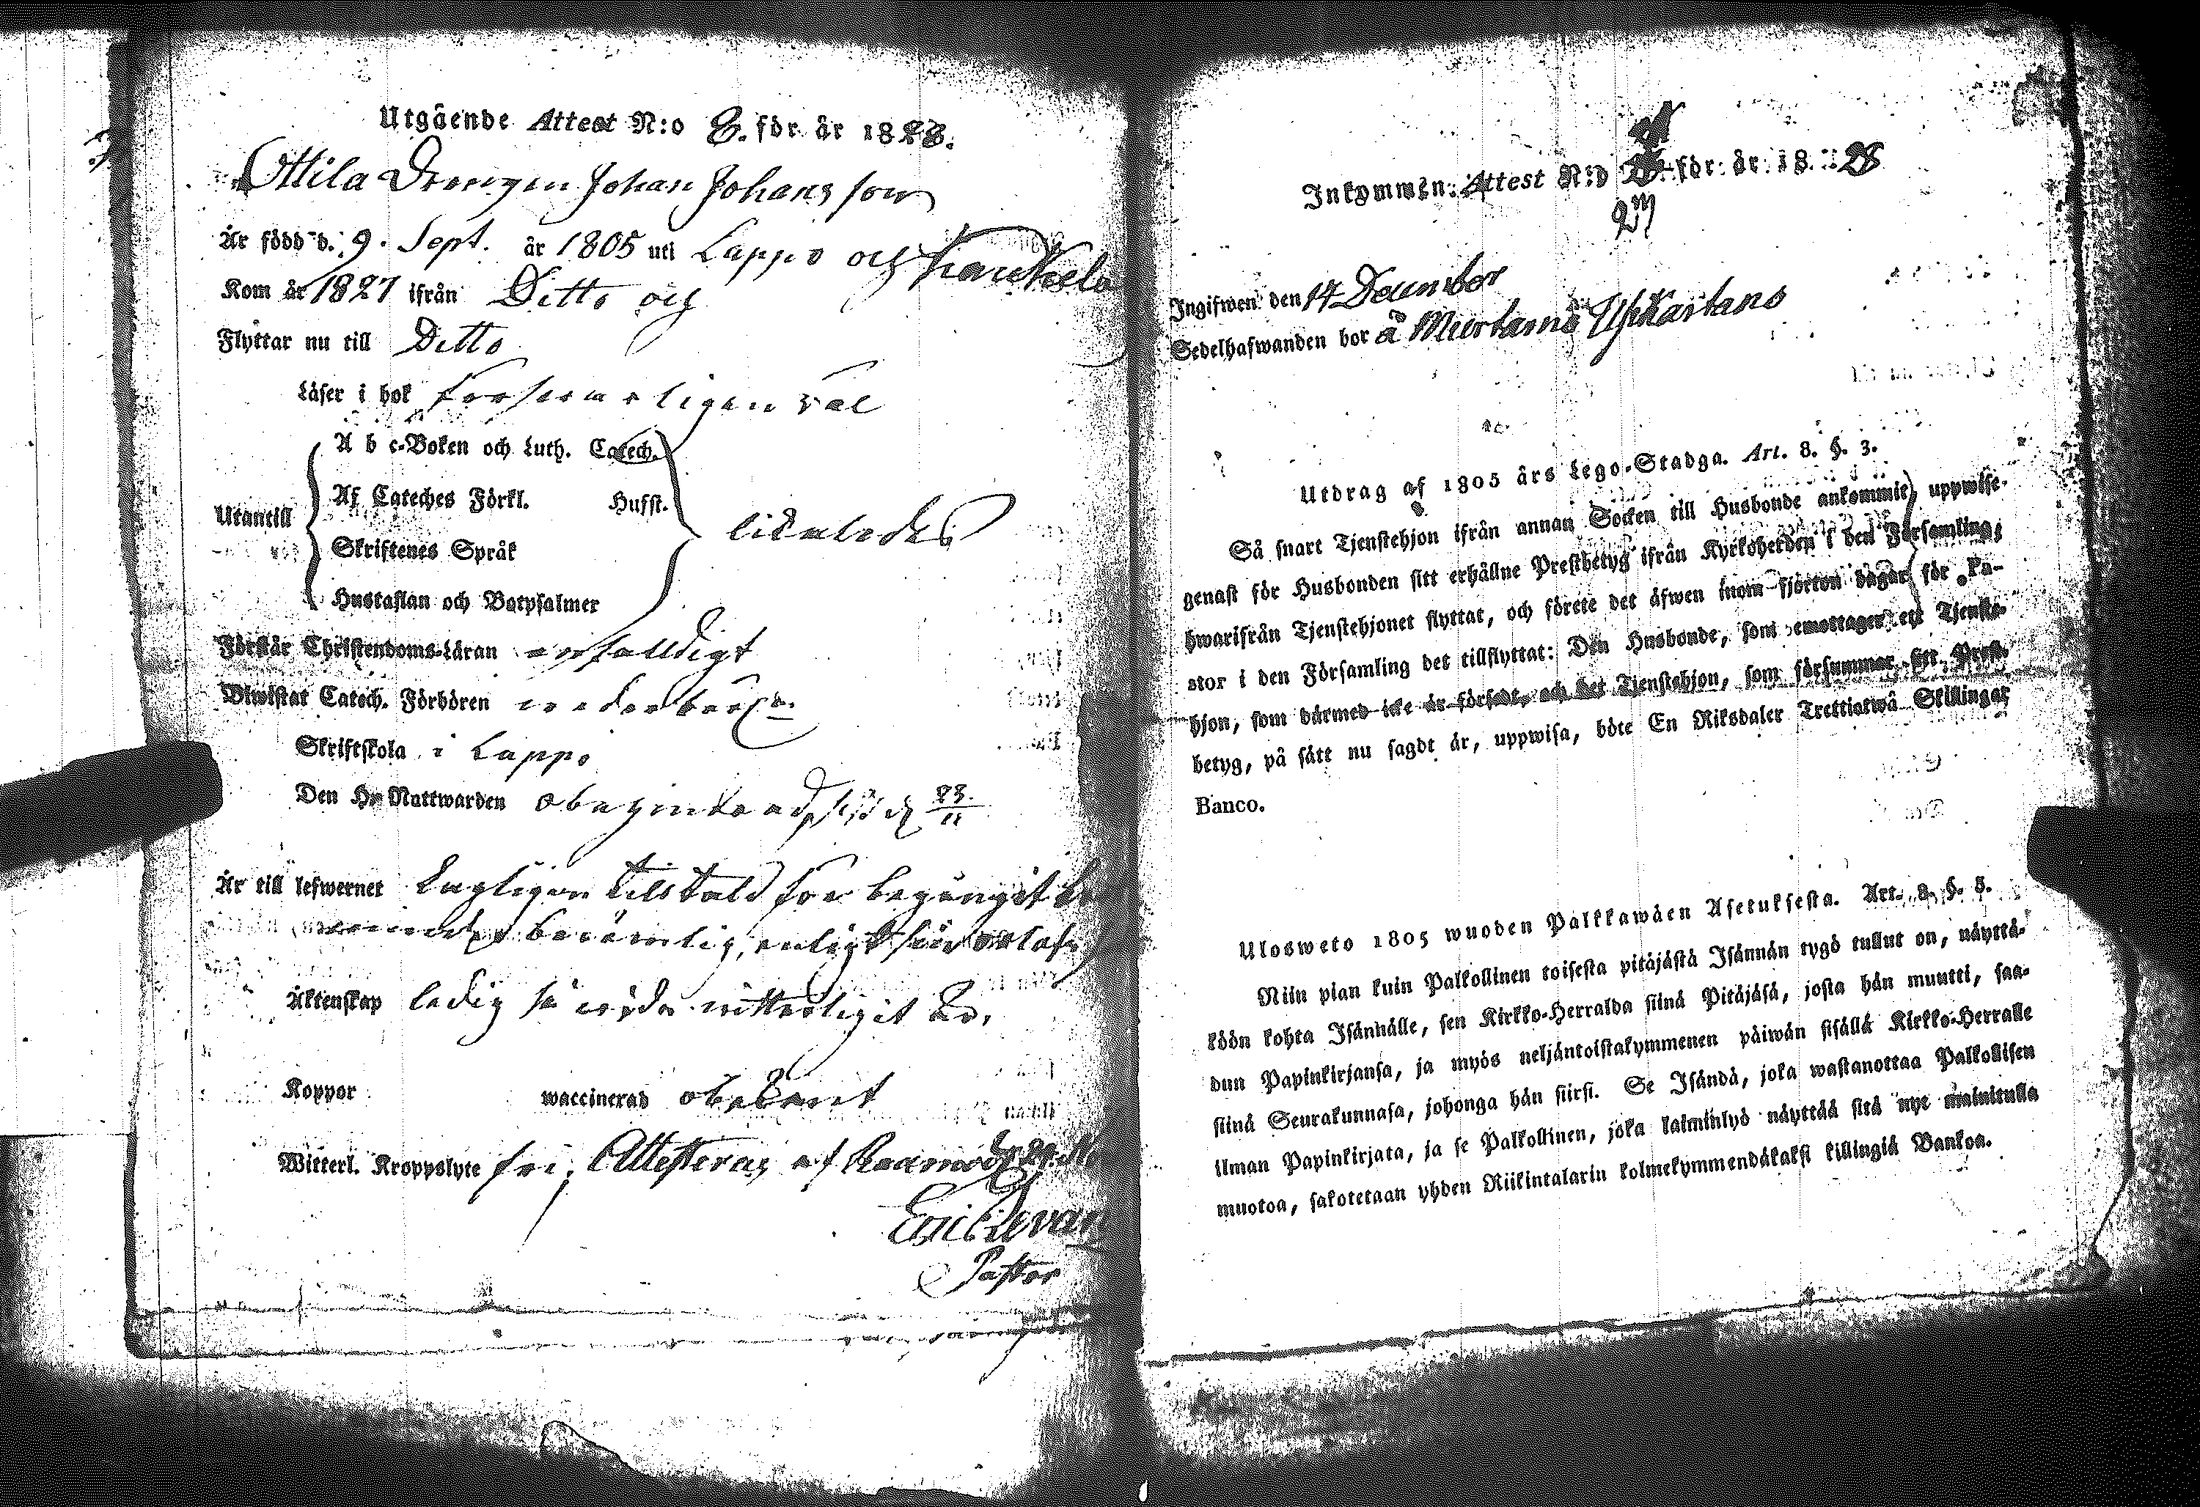 Utgående Attest N:o 8. för år 1828.
Attila Drengen Johan Johansson
Är född d. 9. Sept. år 1805 uti Lappo och
Kom år 1827 ifrån Ditto och
Flyttar nu till Ditto
Läser i bok försvarligen väl
A b c-Boken och Luth. Catech.
Af Cateches Förkl. Husst.
Utantill likaledes
Skriftenes Språk
Hustaflan och Botpsalmer
Förstår Christendoms-Läran enfalldigt
Biwistat Catech. Förhören
Skriftskola i Lappo
Den H. Nattwarden 23.
11
Är till lefwernet Lagligen tilltald för begånget
enligt
Äktenskap ledig så vida witterligit är,
Koppor waccinerad obekant
Witterl. Kroppslyte fri, Attesteras af
Pastor
Inkommen Attest N:o för år 1828
Ingifwen den 14 December
Sedelhafwanden bor å
Utdrag af 1805 års Lego-Stadga. Art. 8. §. 3.
Så snart Tjenstehjon ifrån annan Socken till Husbonde ankommit, uppwise-
genast för Husbonden sitt erhållne Prestbetyg ifrån Kyrkoherden i den Församling,
hwarifrån Tjenstehjonet flyttat, och förete det äfwen inom fjorton dagar för Pa-
stor i den Församling det tillflyttat: Den Husbonde, som emottager ett Tjenste-
hjon, som därmed icke är försedt, och det Tjenstehjon, som försummar sitt Prest-
betyg, på sätt nu sagdt är, uppwisa, böte En Riksdaler Trettiotwå Skillingar
Banco.
Ulosweto 1805 wuoden Palkkawäen Asetuksesta. Art. 8. §. 3.
Niin pian kuin Palkollinen toisesta pitäjästä Isännän tygö tullut on, näyttä-
köön kohta Isännälle, sen Kirkko-Herralda siinä Pitäjäsä, josta hän muutti, saa-
dun Papinkirjansa, ja myös neljäntoistakymmenen päiwän sisällä Kirkko-Herralle
siinä Seurakunnasa, johonga hän siirsi. Se Isändä, joka wastanottaa Palkollisen
ilman Papinkirjata, ja se Palkollinen, joka laiminlyö näyttää sitä nyt mainitulla
muotoa, sakotetaan yhden Riikintalarin kolmekymmendäkaksi killingiä Bankoa.